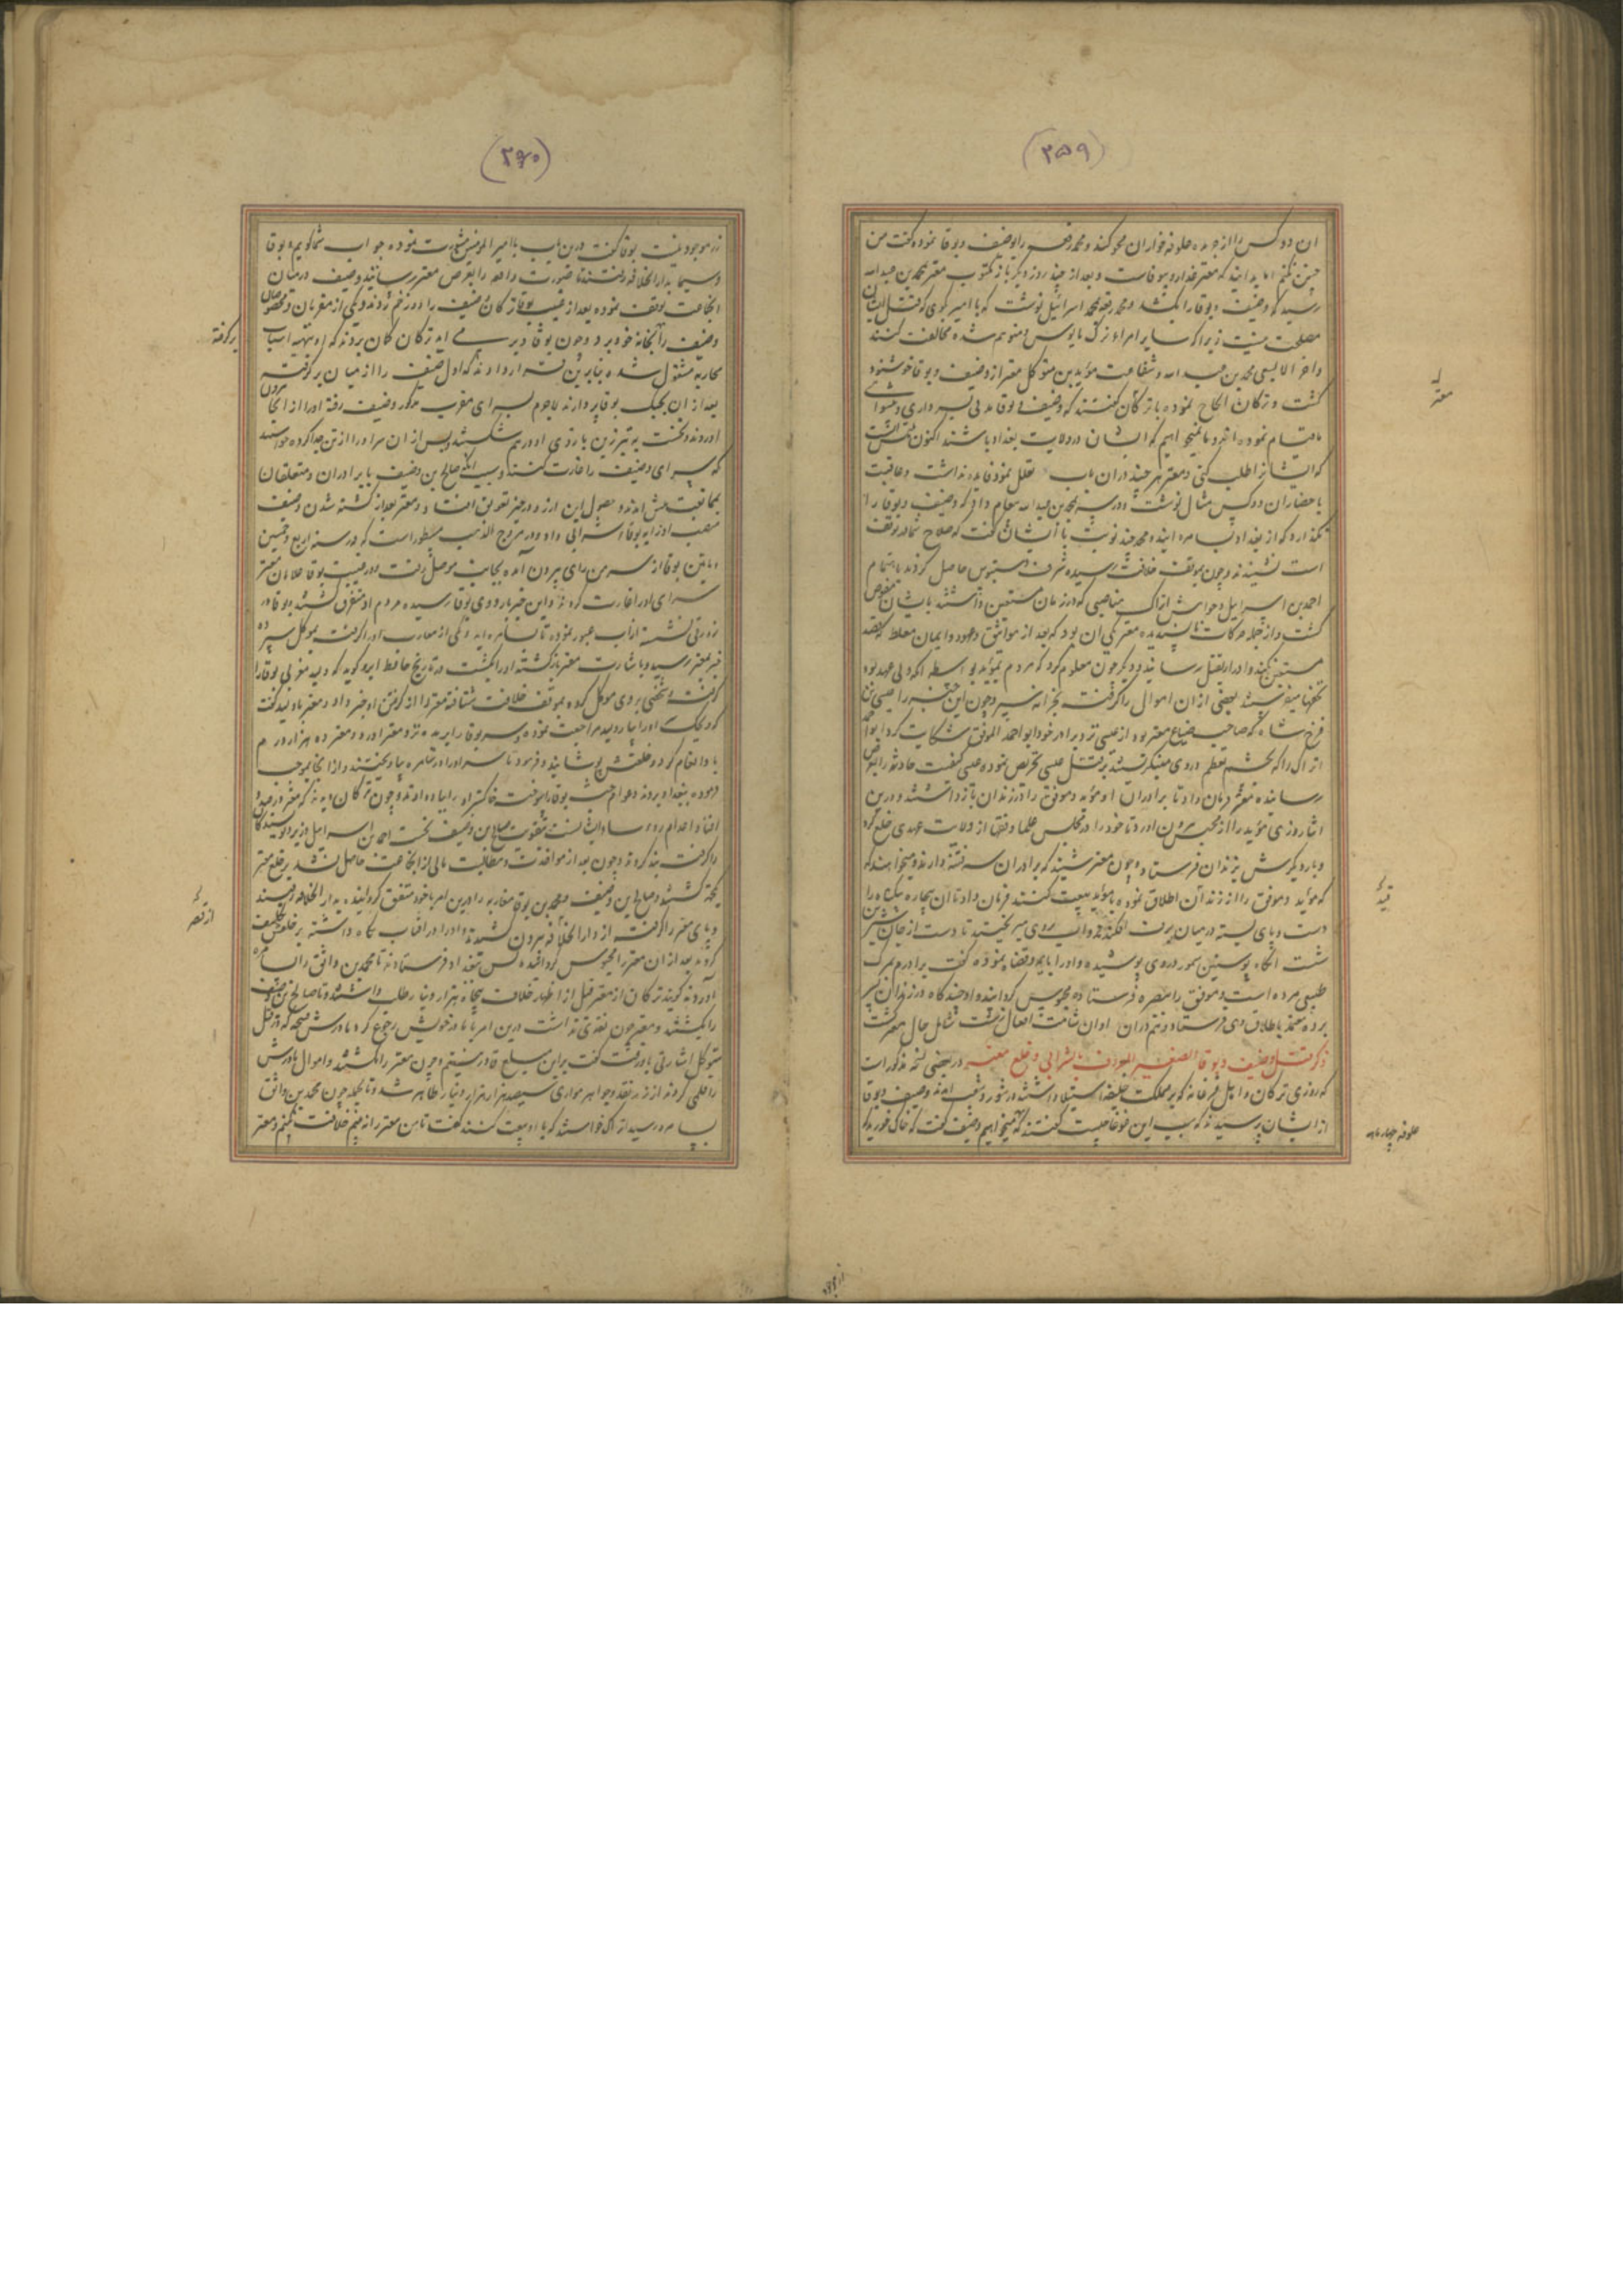 (۲۵۹)
ان دو کس را از جریده علوفه خواران محو کند و محمد رقعه را بوصیف و بوقا نموده گفت من
چنین نکنم اما بدانید که معتز غدار و بیوفاست و بعد از چند روز دیگر باز مکتوب معتز بمحمد بن عبدالله
رسید که وصیف و بوقا را بکشد و محمد رقعه بمحمد اسرائیل نوشت که با امیر بگوی که قتل ایشان
مصلحت نیست زیرا که سایر امراء ترک مایوس و متوهم شده مخالفت کنند
و اخر الامر بسعی محمد بن عبدالله و شفاعت مؤید بن متوکل معتز از وصیف و بوقا خوشنود
گشت و ترکان الحاح نموده با ترکان گفتند که وصیف و بوقا
ما قیام نموده اند و ما نمیخواهیم که ایشان در ولایت بغداد باشند اکنون
که ایشانرا طلب کنی و معتز هر چند در آن باب تعلل نمود فایده نداشت و عاقبت
باحضار آن دو کس مثال نوشت و در سر بمحمد بن عبدالله پیغام داد که وصیف و بوقا را
نگذارد که از بغداد بسامره ایند و محمد چند نوبت با ایشان گفت که صلاح شما در توقف
است نشنیدند و چون بموقف خلافت رسیده شرف دستبوس حاصل کردند باهتمام
احمد بن اسرائیل و خواهش اتراک مناصبی که در زمان مستعین داشتند بایشان مفوض
گشت و از جمله حرکات ناپسندیده معتز یکی آن بود که بعد از مواثیق و عهود و ایمان مغلظه قصد
مستعین کند و او را بقتل رساند و دیگر چون معلوم کرد که مردم بمؤید بواسطه آنکه ولی عهد بود
تحفها میفرستند بعضی از ان اموال را گرفت بخزانه سپرد و چون این خبر را عیسی بن
فرخ شاه که صاحب ضیاع معتز بود از عیسی نزد برادر خود ابو احمد الموفق شکایت کرد ابو احمد
اتراک را که بچشم تعظیم در وی مینگریستند بر قتل عیسی تحریص نموده عیسی کیفیت حادثه را بعرض
رسانیده معتز فرمان داد تا برادران او مؤید و موفق را در زندان باز داشتند و درین
اثنا روزی مؤید را از محبس بیرون اورد تا خود را در مجلس علما و فقها از ولایت عهدی خلع کرد
و بار دیگرش بزندان فرستاد و چون معتز شنید که برادران سر فتنه دارند و میخواهند که
که مؤید و موفق را از زندان اطلاق نموده با مؤید بیعت کنند فرمان داد تا آن بیچاره بیگناه را
دست و پای بسته در میان برف افکندند و آب بروی میریختند تا دست از جان شیرین
شست انگاه پوستین سمور در وی پوشیده و او را بایمه و قضاة نموده گفت برادرم بمرگ
طبیعی مرده است و موفق را ببصره فرستاده محبوس گردانید و او چند گاه در زندان بسر
برده معتمد باطلاق وی فرستاد و درین اوان شامت افعال زشت شامل حال معتز گشت
ذکر قتل وصیف و بوقا الصغیر المعروف بشرابی و خلع معتز در بعضی نسخ مذکورست
که روزی ترکان و اهل فرغانه که بر مملکت خلیفه استیلا داشتند در شور و شغب امدند وصیف و بوقا
از ایشان پرسیدند که سبب این غوغا چیست گفتند که میخواهیم وصیف گفت که خاک خورید که
معتز
قید
علوفه چهار ماهه
(۲۶۰)
زر موجود نیست بوقا گفت درین باب با امیر المومنین مشورت نموده جواب شما گویم بوقا
و سیما بدار الخلافه رفتند تا صورت واقعه را بعرض معتز رسانند و وصیف در میان
انجماعت توقف نموده بعد از غیبت بوقا ترکان وصیف را دو زخم زدند و یکی از مقربان و مخصوصان
وصیف را بخانه خود برد و چون بوقا دیر می آمد ترکان گمان بردند که او بتهیه اسباب
محاربه مشغول شده بنابرین قرار دادند که اول وصیف را از میان بر گرفته
بعد از ان بجنگ بوقا پردازند لاجرم بسرای مقرب مذکور وصیف رفته او را از انجا بیرون
اوردند و نخست به تبرزین بازوی او در هم شکستند پس از ان سر او را از تن جدا کرده خواستند
که سرای وصیف را غارت کنند و سبب انکه صالح بن وصیف با برادران و متعلقان
بممانعت پیش امدند حصول این ارزو در حیز تعویق افتاد و معتز بعد از کشته شدن وصیف
منصب او را به بوقاء شرابی داد و در مروج الذهب مسطور است که در سنه اربع و خمسین
و مایتین بوقا از سر من رای بیرون آمده بجانب موصل رفت و در غیبت بوقا غلامان معتز
سرای او را غارت کردند و این خبر باردوی بوقا رسیده مردم او متفرق گشتند و بوقا در
زورقی نشسته از آب عبور نموده تا بسامره اید و یکی از مغاربه او را گرفت بموکل سپرده
خبر بمعتز رسید و باشارت معتز باز گشته او را بکشت در تاریخ حافظ ابرو گوید که ولید مغربی بوقا را
گرفت و شخصی بروی موکل کرده بموقف خلافت شتافته معتز را از گرفتن او خبر داد و معتز با ولید گفت
که ویحک سر او را بیار ولید مراجعت نموده و سر بوقا را بریده نزد معتز اورد و معتز ده هزار درم
باو انعام کرد و خلعتش پوشانید و فرمود تا سر او را در سامره بیاویختند و از انجا بموجب
فرموده ببغداد بردند و عوام جثه بوقا را سوخته خاکستر او را بباد دادند و چون ترکان دیدند که معتز در صدد
افنا و اعدام روساء ایشانست بتقویت صالح بن وصیف نخست احمد بن اسرائیل وزیر و نویسندگان
را گرفته بند کردند و چون بعد از مواخذت و مطالبت مالی از انجماعت حاصل نشد بر خلع معتز
یکجهت گشتند و صالح بن وصیف و محمد بن بوقا مغاربه را درین امر با خود متفق گردانیده بدار الخلافه رفتند
و پای معتز را گرفته از دار الخلافه بیرون کشیدند و او را در افتاب نگاه داشته بر خلعش تکلیف
کردند بعد از ان معتز را محبوس گردانیده کس ببغداد فرستادند تا محمد بن واثق را بسامره
آوردند گویند ترکان از معتز قبل از اظهار خلافت پنجاه هزار دینار طلب داشتند تا صالح بن وصیف
را بکشند و معتز چون نقدی نداشت درین امر با مادر خویش رجوع کرد مادرش قبیحه که در قتل
متوکل اشارتی باو رفت گفت برین مبلغ قادر نیستم و چون معتز را بکشتند و اموال مادرش
را قلمی کردند از زر نقد و جواهر موازی سیصد هزار هزار دینار ظاهر شد و بالجمله چون محمد بن واثق
بسامره رسید اتراک خواستند که با او بیعت کنند گفت تا من معتز را نه بینم خلافت نکنم و معتز
بر گرفته
از قصر